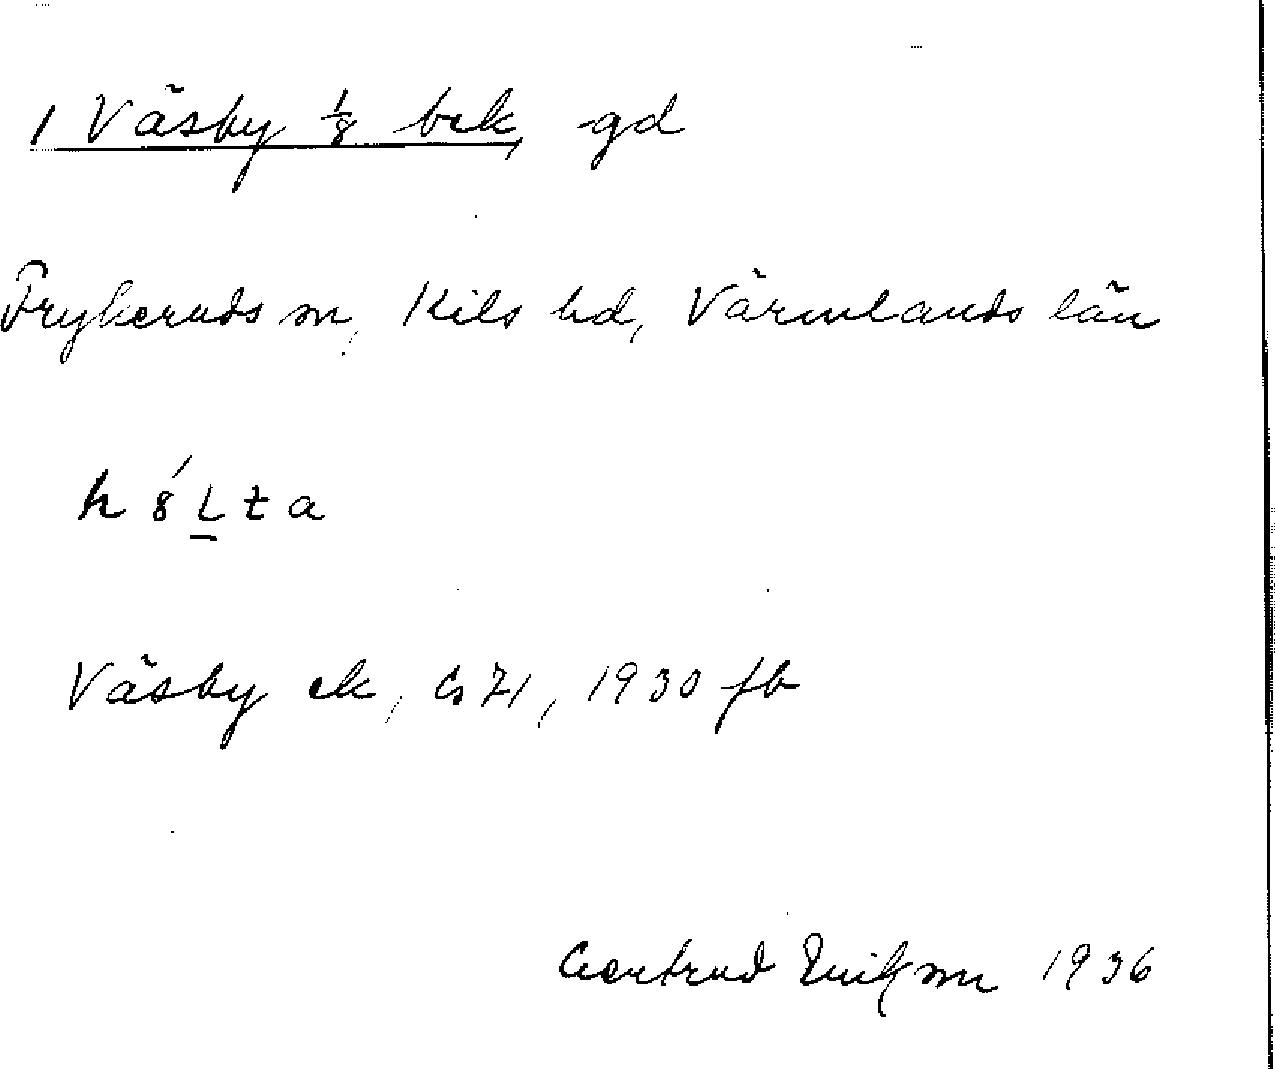 1 Väsby 1/8 bek, gd
Frykeruds sn, Kils hd, Värmlands län
h 8́ L̲ t a
Väsby ek, Gs 71, 1930 fb
Gertrud 1936